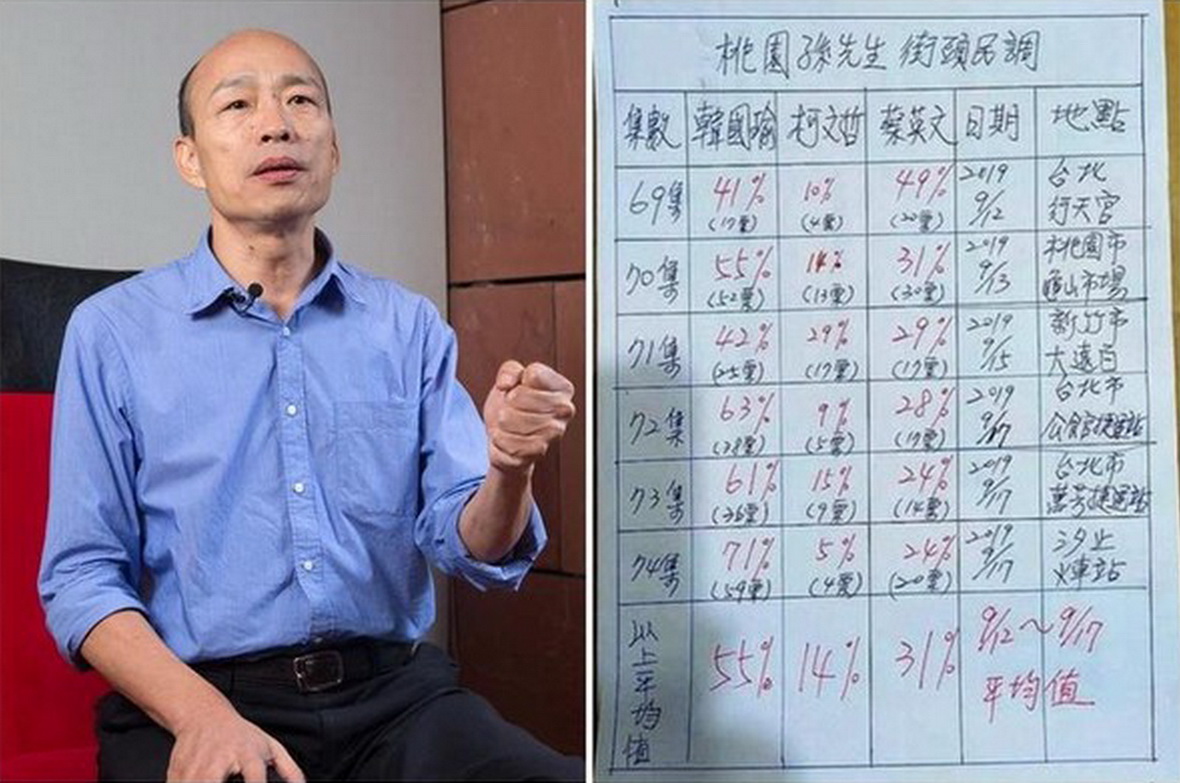 桃園孫先生街頭民調
集數 韓國瑜 柯文哲 蔡英文 日期 地點
69集 41% (17票) 10% (4票) 49% (20票) 2019 9/12 台北 行天宮
70集 55% (52票) 14% (13票) 31% (30票) 2019 9/13 桃園市 龜山市場
71集 42% (25票) 29% (17票) 29% (17票) 2019 9/15 新竹市 大遠百
72集 63% (39票) 9% (5票) 28% (17票) 2019 9/17 台北市 公館捷運站
73集 61% (36票) 15% (9票) 24% (14票) 2019 9/17 台北市 萬芳捷運站
74集 71% (59票) 5% (4票) 24% (20票) 2019 9/17 汐止 火車站
以上平均值 55% 14% 31% 9/12~9/17 平均值